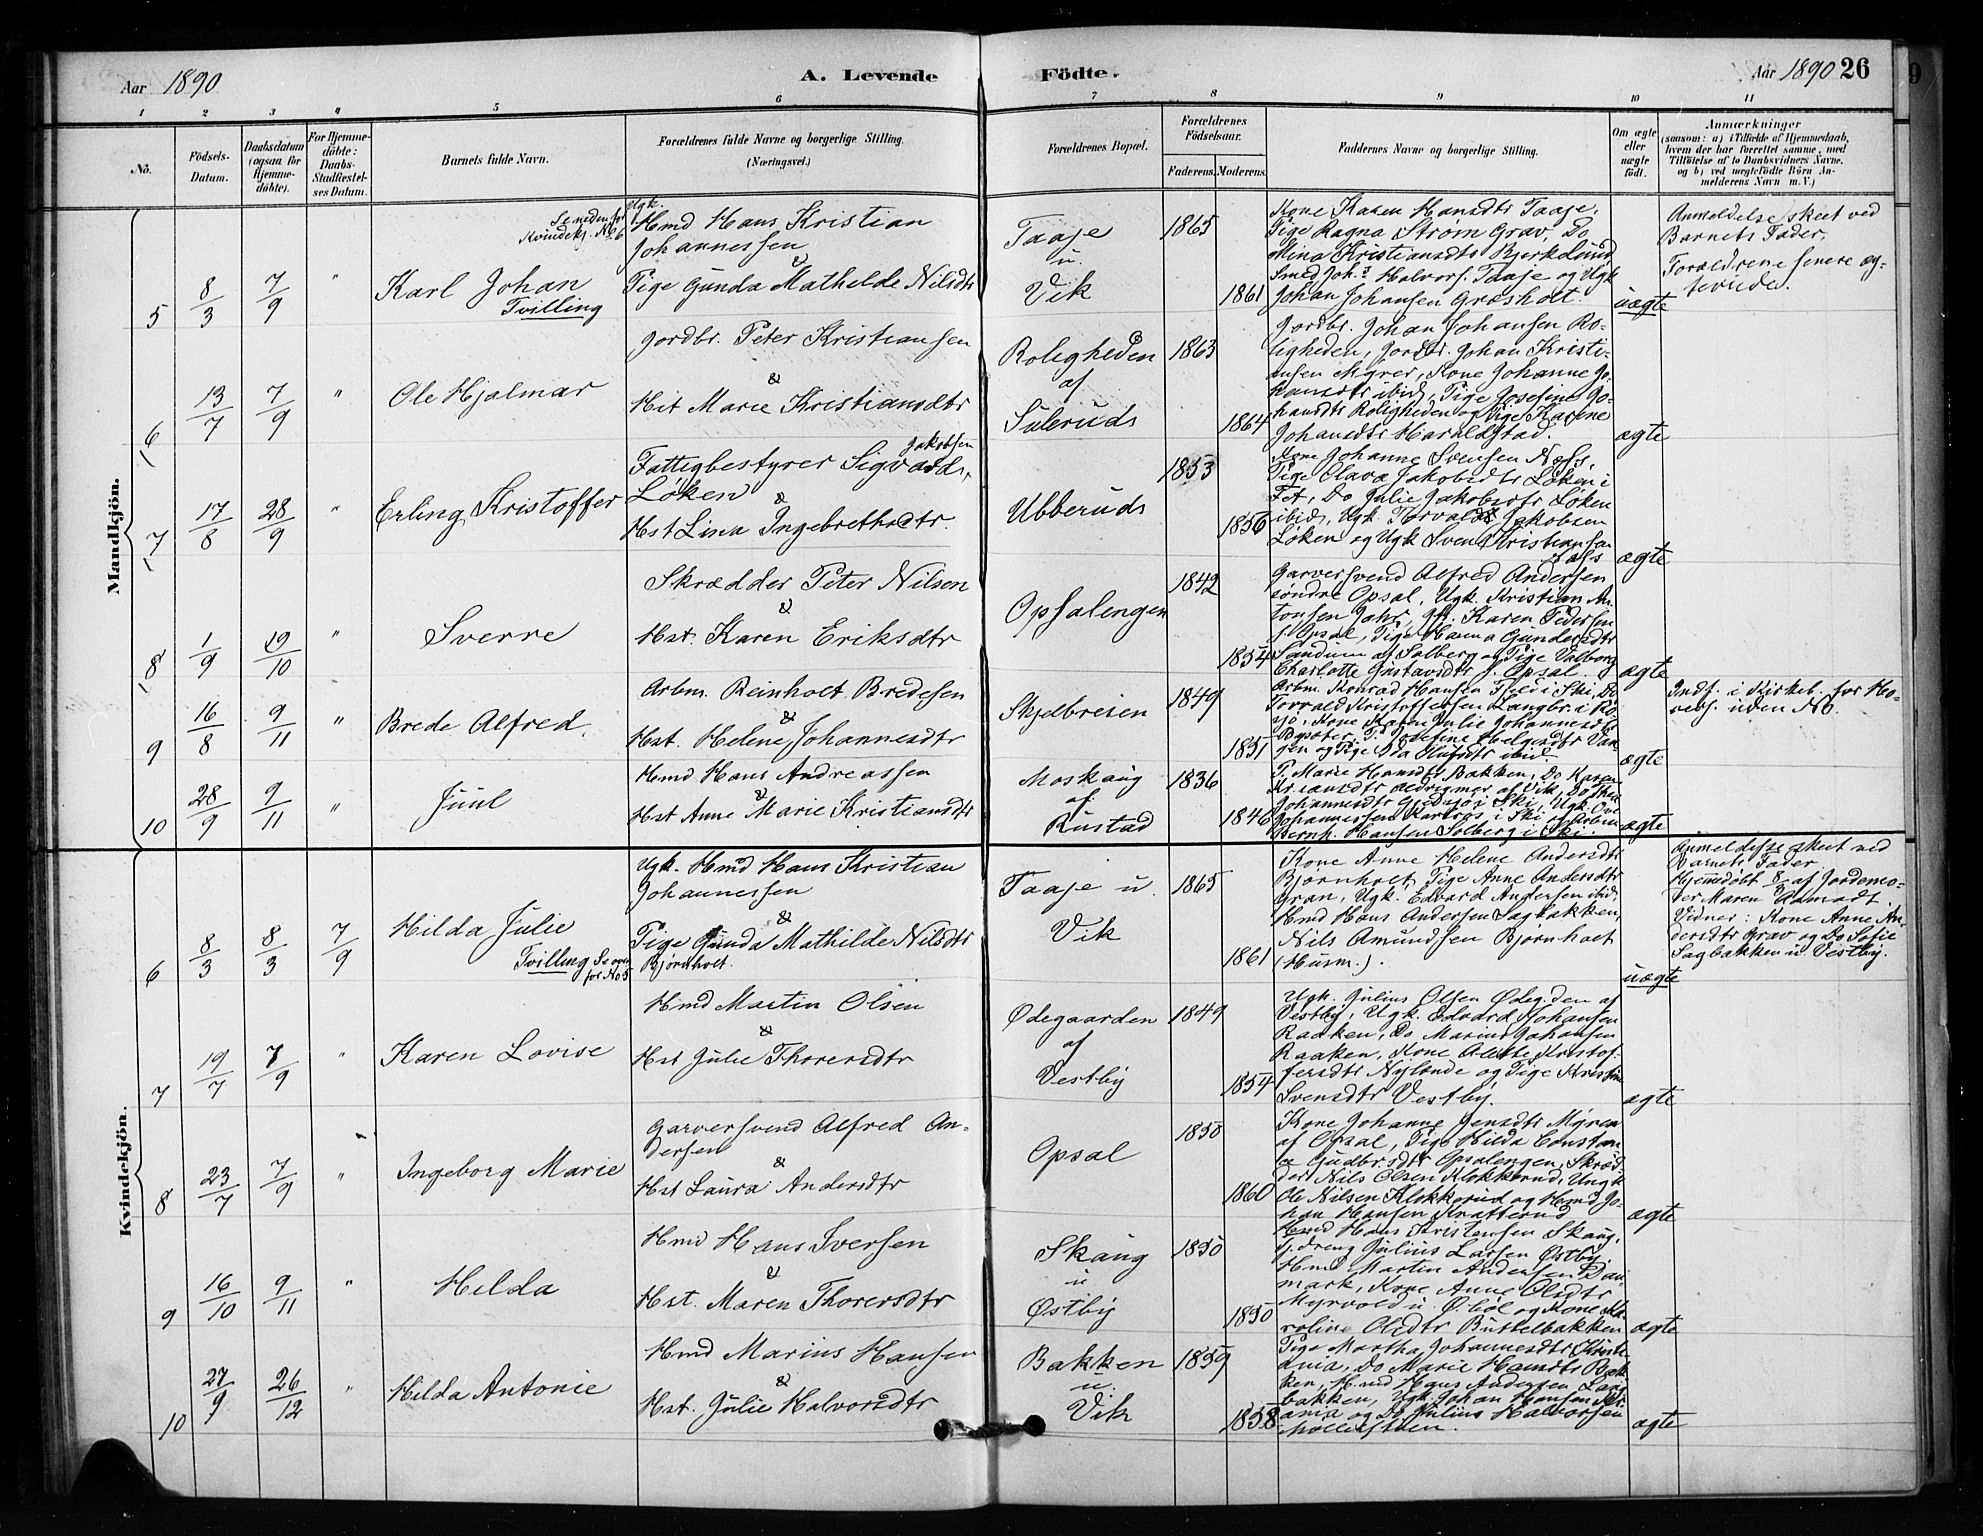 Aar 1890
A. Levende
Födte.
Aar 1890 26
1 2 3 4 5 6 7 8 9 10 11
No.
Födsels-Datum.
Daabsdatum (ogsaa for Hjemmedöbte).
For Hjemmedöbte: Daabs-Stadfæstelses Datum.
Barnets fulde Navn.
Forældrenes fulde Navne og borgerlige Stilling.
(Næringsvei.)
Forældrenes Bopæl.
Forældrenes Födselsaar.
Faderens. Moderens.
Faddernes Navne og borgerlige Stilling.
Om ægte eller uægte födt.
Anmærkninger
(saasom: a) i Tilfælde af Hjemmedaab, hvem der har forrettet samme, med Tilföielse af to Daabsvidners Navne, og b) ved uægtefödte Börn Anmelderens Navn m. V.)
Mandkjön.
5
8/3
7/9
"
Se neden for
Kvindekj. No 6
Karl Johan
Tvilling
Ugk.
Hmd Hans Kristian
Johannessen
&
Pige Gunda Mathilde Nilsdtr
Taaje
u.
Vik
1865
1861
Kone Karen Hansdtr Taaje,
Pige Ragna Strøm Grav, Do
Mina Kristiansdtr Bjerkelund
Smed Joh.s Halvors. Taaje og Ugk
Johan Johansen Græsholt.
uægte
Anmeldelse skeet ved
Barnets Fader.
Forældrene senere æg-
teviede.
6
13/7
7/9
"
Ole Hjalmar
Jordbr. Peter Kristiansen
&
Hst Marie Kristiansdtr
Roligheden
af
Suleruds
1863
1864
Jordbr. Johan Johansen Ro-
ligheden, Jordbr. Johan Kristi-
ansen Myrer, Kone Johanne Jo-
hansdtr ibid, Pige Josefine Jo-
hansdtr Roligheden og Pige Karene
Johansdtr Haraldstad.
ægte
7
17/8
28/9
"
Erling Kristoffer
Fattigbestyrer Sigvard
Jakobsen
Løken
&
Hst Lina Ingebrethsdtr.
Ubberuds
1853
1856
Kone Johanne Svensen Næss,
Pige Olava Jakobsdtr Løken i
Fet, Do Julie Jakobsdtr Løken
ibid, Ugk. Torvald Jakobsen
Løken og Ugk Sven Kristiansen
ægte
8
1/9
19/10
"
Sverre
Skrædder Peter Nilsen
&
Hst. Karen Eriksdtr
Opsalengen
1842
1854
Garversvend Alfred Andersen
søndre Opsal, Ugk. Kristian An-
tonsen Jahr, Karen Pedersen
Opsal, Pige Hanna Gundersdtr
Sandum af Solberg og Pige Valborg
Charlotte Gustavsdtr Opsal.
ægte
9
16/8
9/11
"
Brede Alfred.
Arbm. Reinholt Bredesen
&
Hst. Helene Johannesdtr
Skjelbreien
1849
1851
Arbm. Konrad Hansen Fjeld i Ski, Do
Torvald Kristoffersen Langbr. i
Kone Karen Julie Johannesdtr
Josefine Helgesdtr Van-
gen og Pige Ida Olufsdtr ibid.
ægte
Indf. i Kirkeb. for Ho-
veds. uden No.
10
28/9
9/11
"
Juul
Hmd Hans Andreassen
&
Hst Anne Marie Kristiansdtr
Moskaug
af
Rustad
1836
1846
P. Marie Hansdtr Bakken, Do Karen
Kr.iansdtr Aldrigmer af Vik, Do
Johannesdtr Gjedsjø i Ski, Ugk. Ove
Johannessen Karlros i Ski og Arbm
Bernh. Hansen Solberg i Ski.
ægte
Kvindekjön.
6
8/3
8/3
7/9
Hilda Julie
Tvilling Se oven
for No 5
Ugk. Hmd Hans Kristian
Johannessen
&
Pige Gunda Mathilde Nilsdtr
Bjørnholt.
Taaje u.
Vik
1865
1861
Kone Anne Helene Andersdtr
Bjørnholt, Pige Anne Andersdtr
Gran, Ugk. Edvard Andersen ibid,
Hmd Hans Andersen Sagbakken,
Nils Amundsen Bjørnholt
(Husm.).
uægte
Anmeldelse skeet ved
Barnets Fader.
Hjemmedøbt 8/3 af Jordemo-
der Maren Aamodt.
Vidner: Kone Anne An-
dersdtr Grav og Do Sofie
Sagbakken u. Vestby.
7
19/7
7/9
"
Karen Lovise
Hmd Martin Olsen
&
Hst Julie Thorersdtr
Ødegaarden
af
Vestby
1849
1854
Ugk. Julius Olsen Ødeg.den af
Vestby, Ugk. Edvard Johansen
Raaken, Do Marius Johansen
Raaken, Kone Alette Kristof-
fersdtr Nylende og Pige Kristine
Svensdtr Vestby.
ægte
8
23/7
7/9
"
Ingeborg Marie
Garversvend Alfred An-
dersen
&
Hst Laura Andersdtr
Opsal
1850
1860
Kone Johanne Jensdtr Myren
af Opsal, Pige Hilda Constan
ce Gudbr.sdtr Opsalengen, Skræd-
der Nils Olsen Klokkerud, Ungk
Ole Nilsen Klokkerud og Hmd Jo-
han Hansen Krafterud
ægte
9
16/10
9/11
"
Hilda
Hmd Hans Iversen
&
Hst. Maren Thorersdtr
Skaug
u
Østby
1850
1850
Hmd Hans Kristensen Skaug,
Tj.dreng Julius Larsen Østby,
Hmd Martin Andersen Dan-
mark, Kone Anne Olsdtr
Myrvold u. Øibøl og Kone Ka-
roline Olsdtr Buttelbakken
ægte
10
27/9
26/12
"
Hilda Antonie
Hmd Marius Hansen
&
Hst. Julie Halvorsdtr
Bakken
u
Vik
1859
1858
Pige Martha Johannesdtr Kristi-
ania, Do Marie Hansdtr Bak-
ken, Hmd Hans Andersen Sag-
bakken, Ugk. Johan Hansen Kri-
ania og Do Julius Halvorsen
ægte